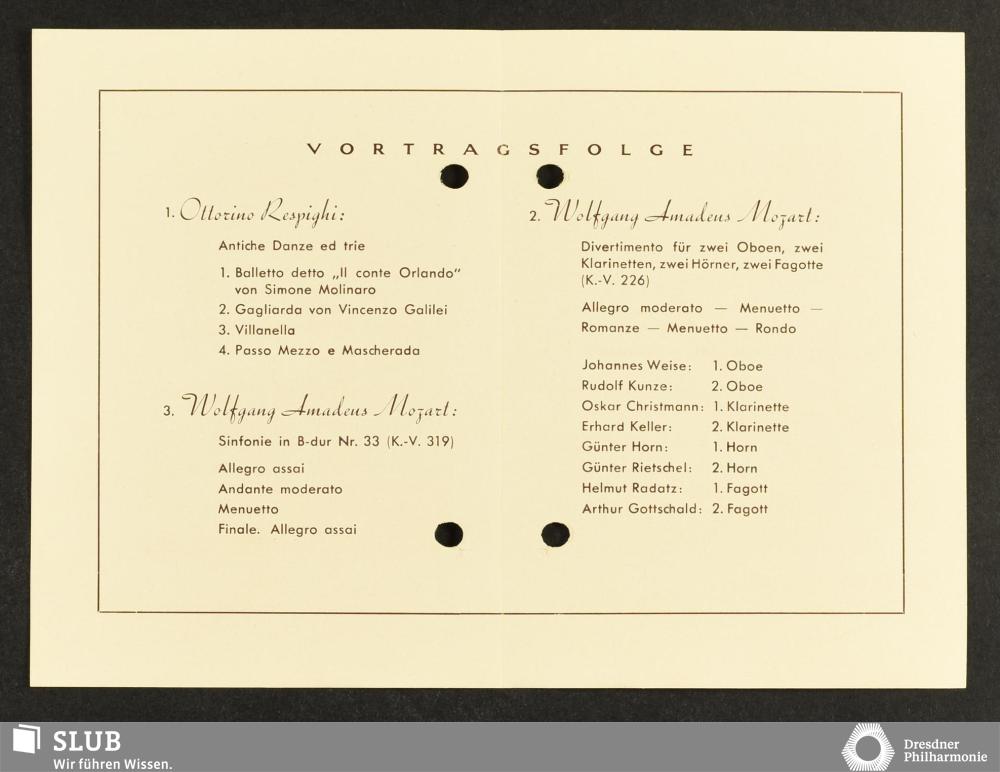 VORTRAGSFOLGE
1. Ottorino Respighi:
Antiche Danze ed trie
1. Balletto detto „Il conte Orlando“
von Simone Molinaro
2. Gagliarda von Vincenzo Galilei
3. Villanella
4. Passo Mezzo e Mascherada
2. Wolfgang Amadeus Mozart:
Divertimento für zwei Oboen, zwei
Klarinetten, zwei Hörner, zwei Fagotte
(K.-V. 226)
Allegro moderato — Menuetto —
Romanze — Menuetto — Rondo
Johannes Weise: 1. Oboe
Rudolf Kunze: 2. Oboe
Oskar Christmann: 1. Klarinette
Erhard Keller: 2. Klarinette
Günter Horn: 1. Horn
Günter Rietschel: 2. Horn
Helmut Radatz: 1. Fagott
Arthur Gottschald: 2. Fagott
3. Wolfgang Amadeus Mozart:
Sinfonie in B-dur Nr. 33 (K.-V. 319)
Allegro assai
Andante moderato
Menuetto
Finale. Allegro assai
SLUB
Wir führen Wissen.
Dresdner
Philharmonie